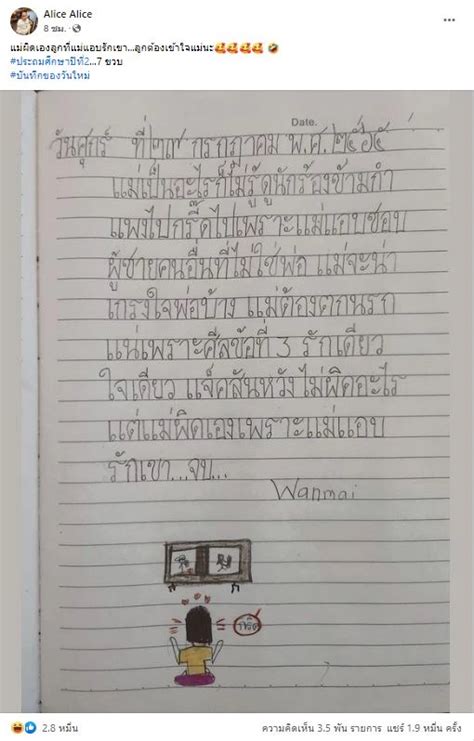 Alice Alice
8 ชม.
แม่ผิดเองลูกที่แม่แอบรักเขา...ลูกต้องเข้าใจแม่นะ🥰🥰🥰🥰 🤣
#ประถมศึกษาปีที่2...7 ขวบ
#บันทึกของวันใหม่
Date.
วันศุกร์ ที่ ๒๙ กรกฎาคม พ.ศ.๒๕๖๕
แม่เป็นอะไรก็ไม่รู้ดูนักร้องข้ามกำ
แพงไปกรี๊ดไปเพราะแม่แอบชอบ
ผู้ชายคนอื่นที่ไม่ใช่พ่อ แม่จะน่า
เกรงใจพ่อบ้าง แม่ต้องตกนรก
แน่เพราะศีลข้อที่ 3 รักเดียว
ใจเดียว แจ็คสันหวังไม่ผิดอะไร
แต่แม่ผิดเองเพราะแม่แอบ
รักเขา...จบ...
Wanmai
กรี๊ด
2.8 หมื่น
ความคิดเห็น 3.5 พัน รายการ แชร์ 1.9 หมื่น ครั้ง